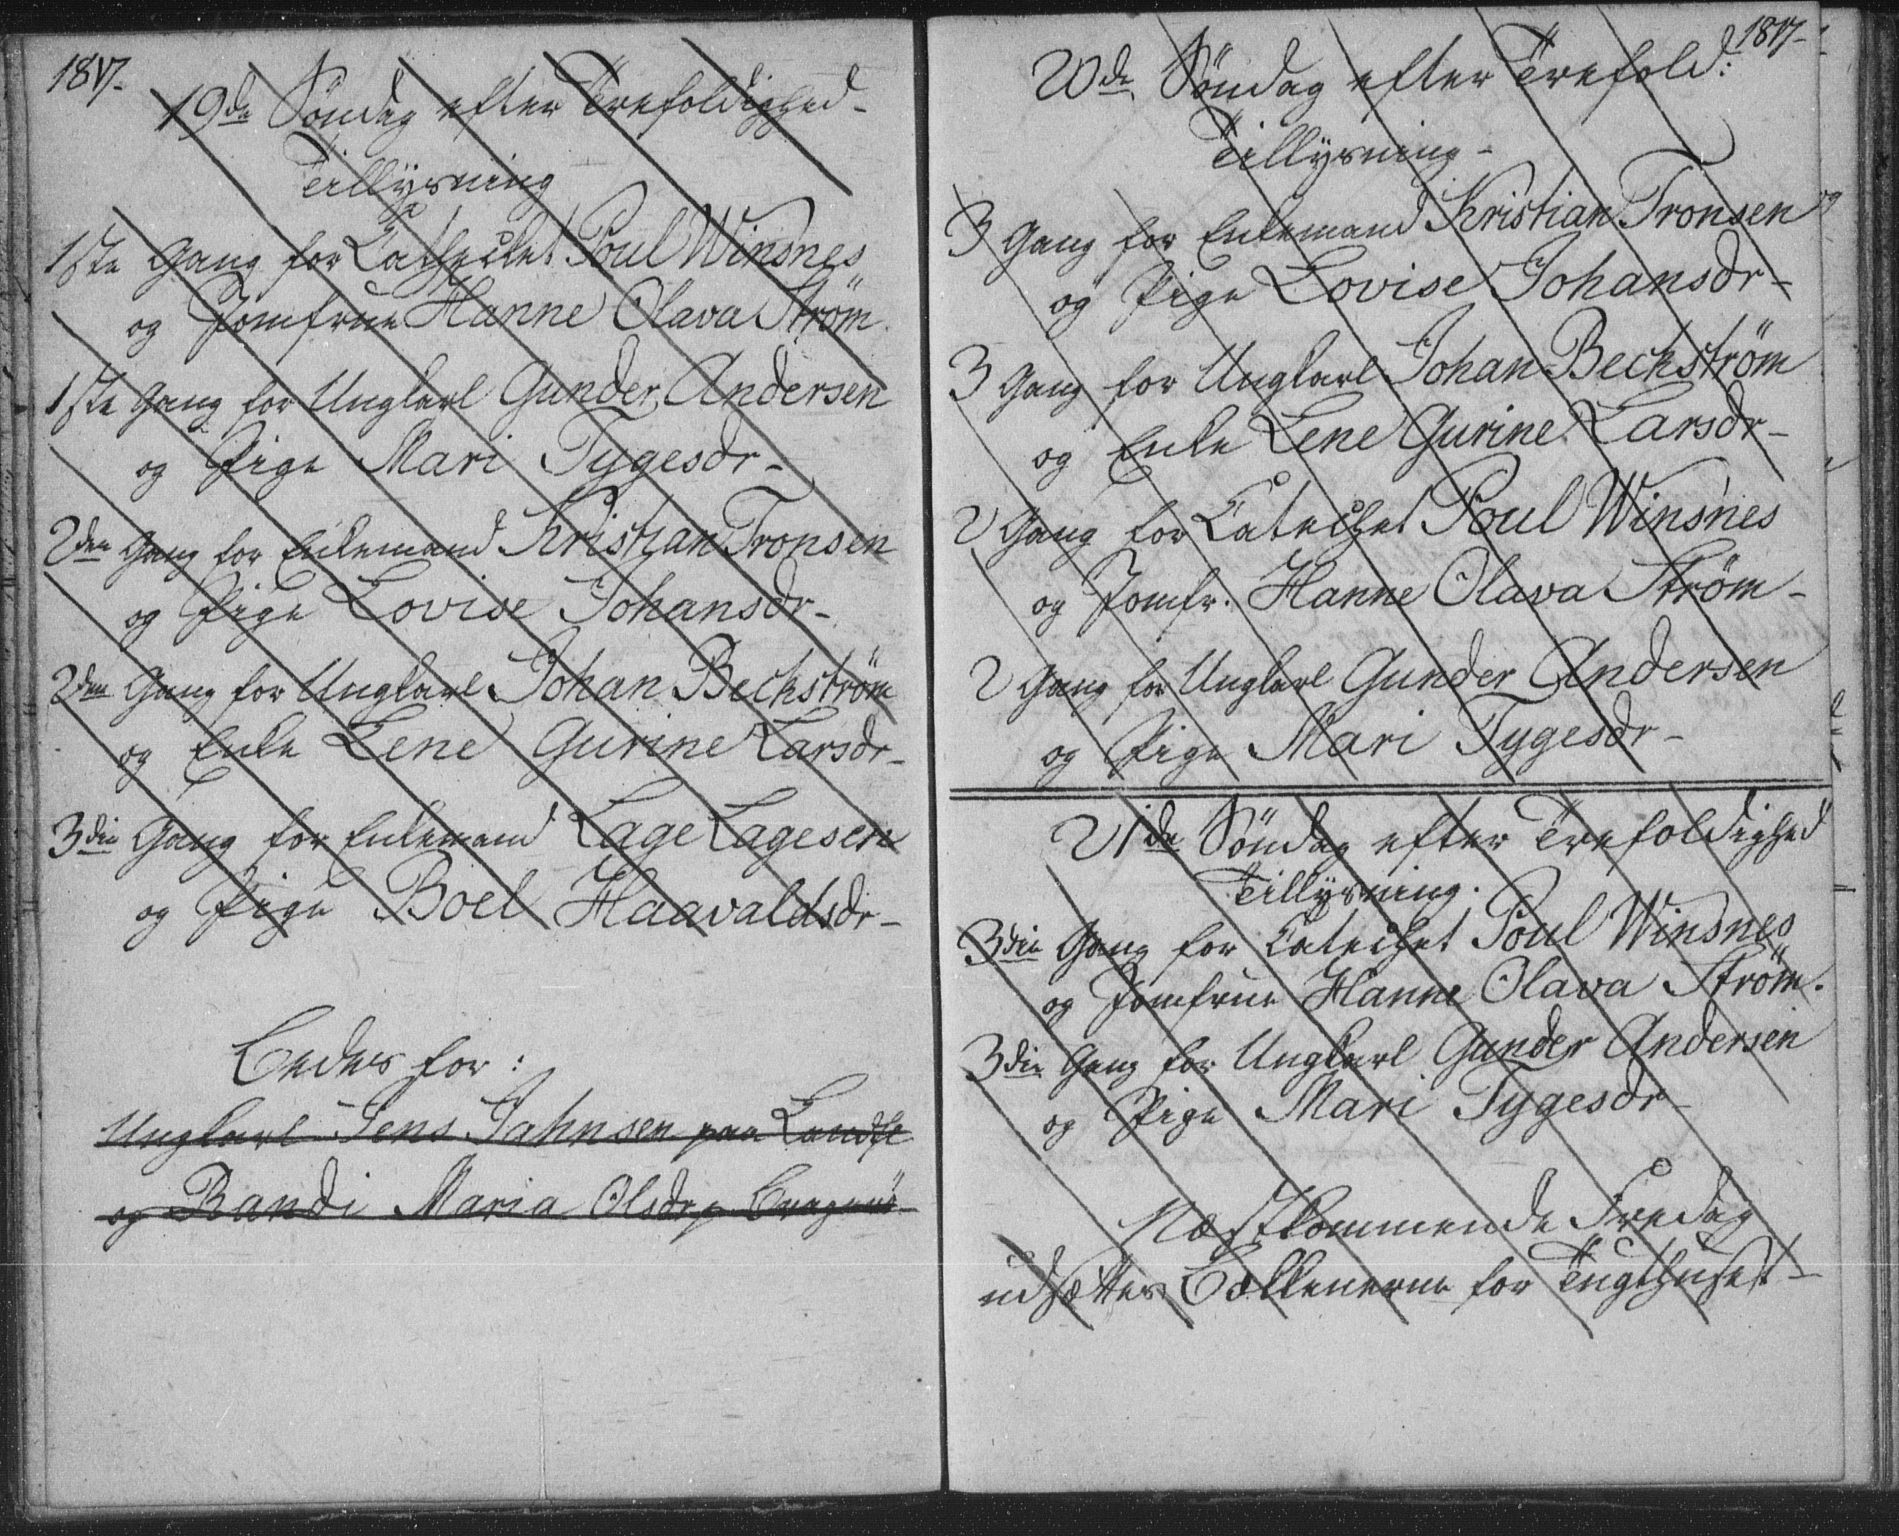 1817.
19de Söndag efter Trefoldighed-
Tillysning
1ste Gang for Cathechet Poul Winsnes
og Jomfrue Hanne Olava Strøm.
1ste Gang for Ungkarl Gunder Andersen
og Pige Mari Tygesdr-
2den Gang for Enkemand Kristian Tronsen
og Pige Lovise Johansdr-
2den Gang for Ungkarl Johan Beckstrøm
og Enke Lene Gurine Larsdr-
3die Gang for Enkemand Lage Lagesen
og Pige Boel Haavaldsdr-
Bedes for:
Ungkarl Jens Jahnsen paa
og Randi Maria Olsdr p Bragernæs
1817-
20de Söndag efter Trefold:
Tillysning-
3 Gang for Enkemand Kristian Tronsen
og Pige Lovise Johansdr-
3 Gang for Ungkarl Johan Beckstrøm
og Enke Lene Gurine Larsdr-
2 Gang for Catechet Poul Winsnes
og Jomfr. Hanne Olava Strøm-
2 Gang for Ungkarl Gunder Andersen
og Pige Mari Tygesdr-
21de Söndag efter Trefoldighed
Tillysning.
3die Gang for Catechet Poul Winsnes
og Jomfrue Hanne Olava Strøm.
3die Gang for Ungkarl Gunder Andersen
og Pige Mari Tygesdr-
Næstkommende Fredag
udsættes Bækkenerne for Tugthuset-